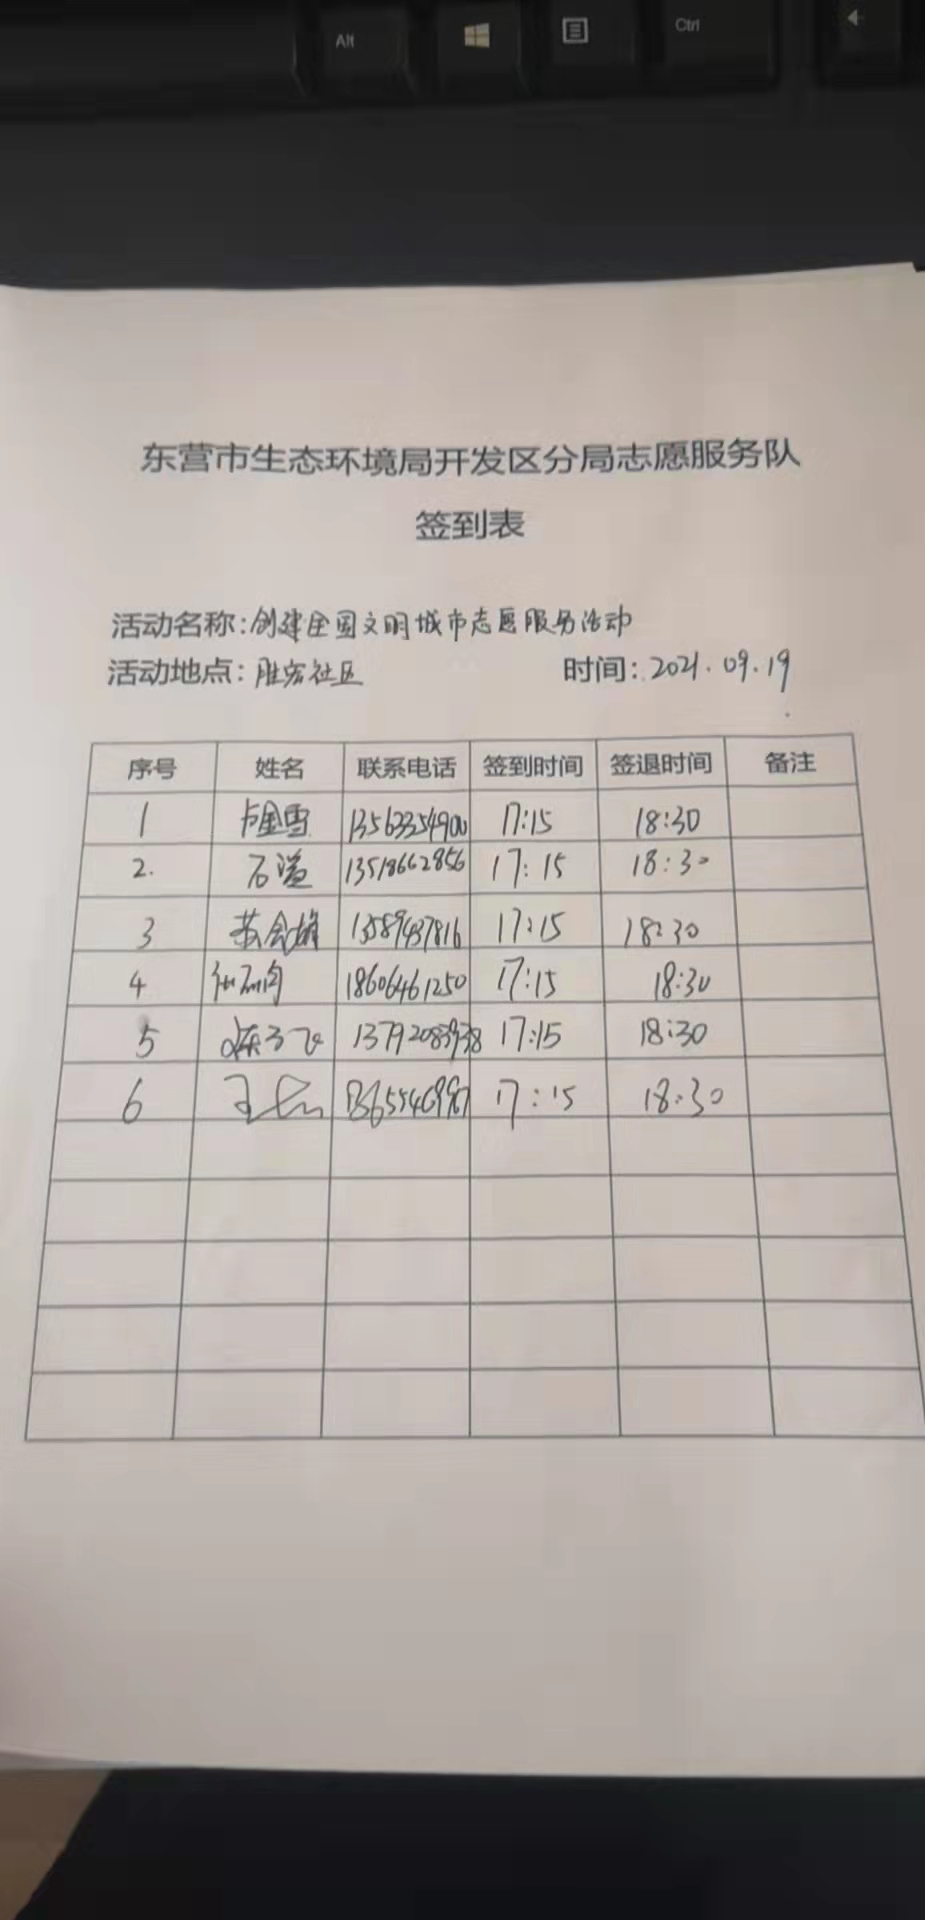 Alt
Ctrl
东营市生态环境局开发区分局志愿服务队
签到表
活动名称:创建全国文明城市志愿服务活动
活动地点:胜宏社区 时间:2021.09.19
序号 姓名 联系电话 签到时间 签退时间 备注
1 卢金雪 13563354900 17:15 18:30
2. 石溢 13518662856 17:15 18:30
3 13589437816 17:15 18:30
4 18606461250 17:15 18:30
5 17:15 18:30
6 17:15 18:30